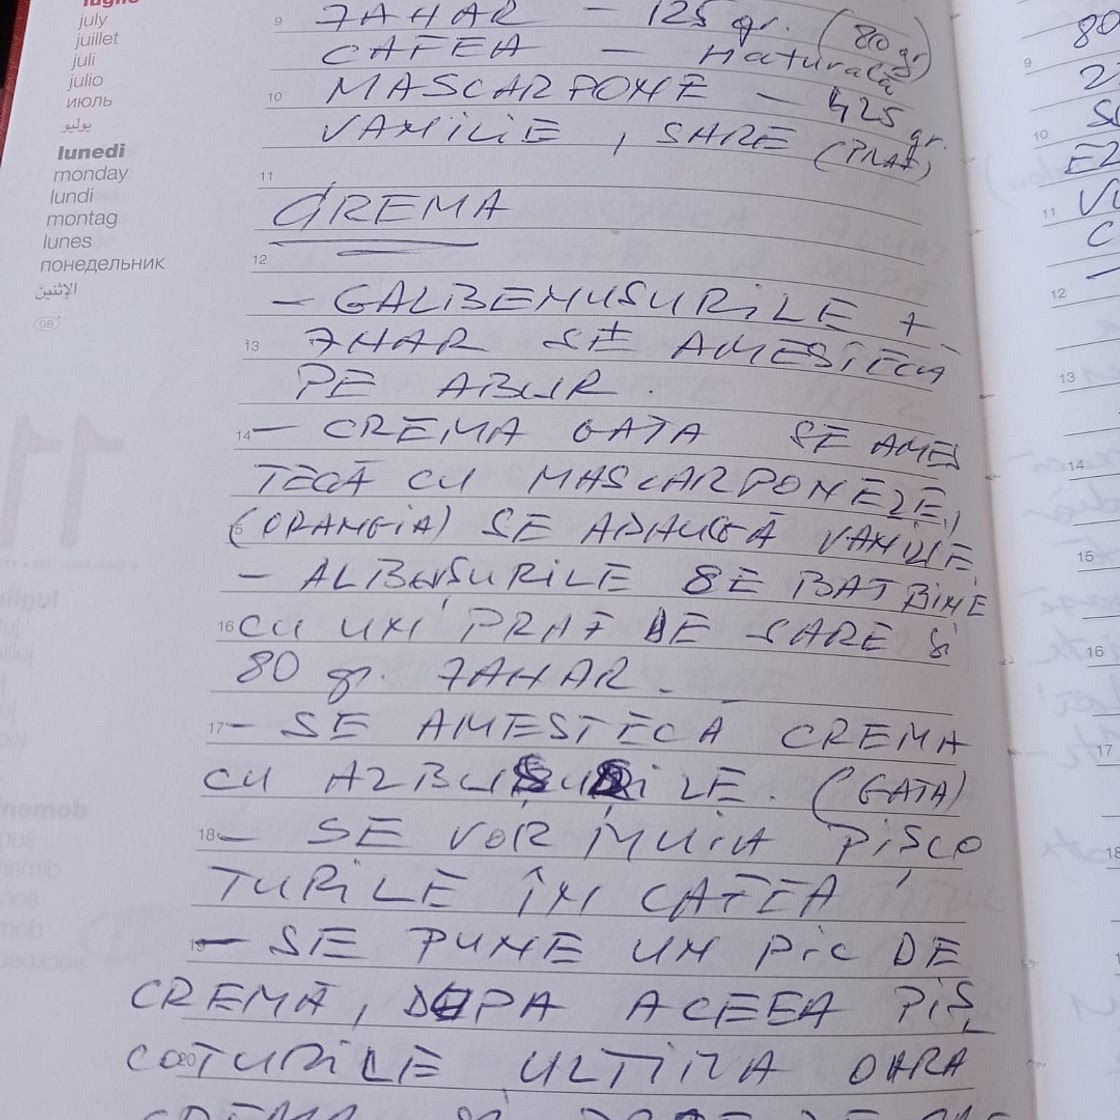 luglio
july
juillet
juli
julio
июль
يوليو
lunedi
monday
lundi
montag
lunes
понедельник
الإثنين
GB
9 ZAHAR — 125 gr. (80 gr)
CAFEA — Naturală
10 MASCARPONE — 425 gr.
VANILIE, SARE (PRAF)
11
CREMA
12
— GALBENUSURILE +
13 ZHAR SE AMESTECA
PE ABUR.
14 — CREMA GATA SE AMES
TECĂ CU MASCARPONELE,
(ORANGIA) SE ADAUGĂ VANILIE.
— ALBUȘURILE SE BAT BINE
16 CU UN PRAF DE SARE și
80 gr. ZAHAR.
17 — SE AMESTECĂ CREMA
CU ALBUȘURILE. (GATA)
18 — SE VOR MUIA PIȘCO
TURILE ÎN CAFEA
19 — SE PUNE UN PIC DE
CREMĂ, DUPA ACEEA PIȘ
COTURILE ULTIMA OARA
20
CREMA
80
9
10
11
12
13
14
15
16
17
18